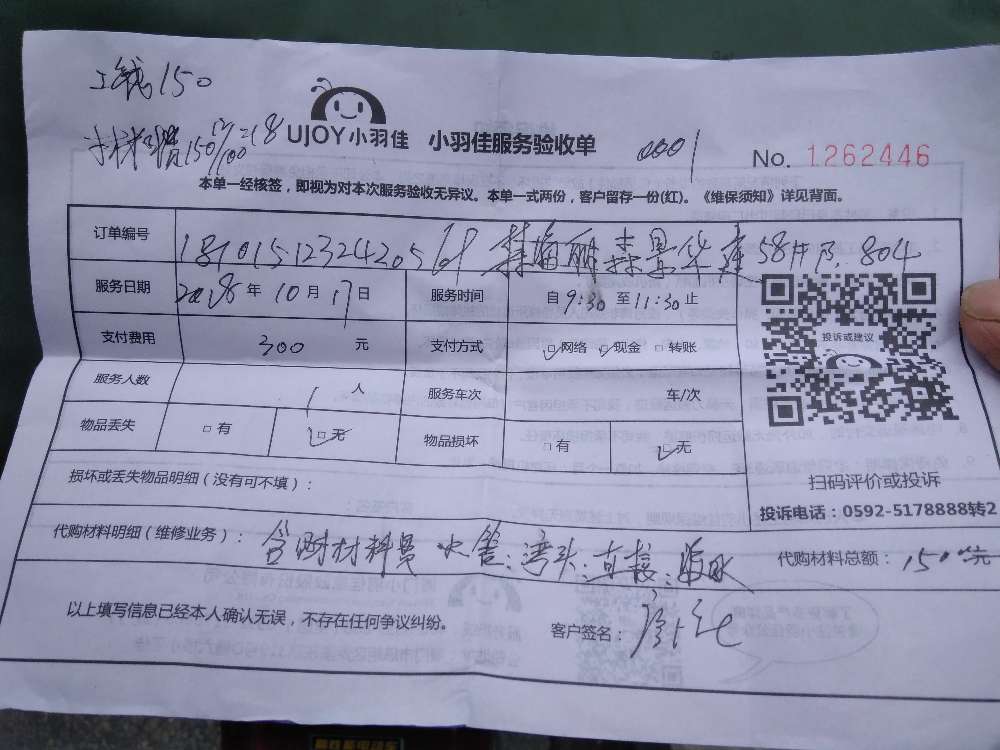 工钱150
材料费150
UJOY小羽佳 小羽佳服务验收单 0001 No. 1262446
本单一经核签，即视为对本次服务验收无异议。本单一式两份，客户留存一份(红)。《维保须知》详见背面。
订单编号
服务日期 2018年10月17日 服务时间 自9:30至11:30止
支付费用 300 元 支付方式 网络 现金 转账
投诉或建议
服务人数 1 人 服务车次 车/次
物品丢失 有 无 物品损坏 有 无
损坏或丢失物品明细（没有可不填）：
扫码评价或投诉
投诉电话：0592-5178888转2
代购材料明细（维修业务）： 含材料费 水管：弯头：直接： 代购材料总额：150元
以上填写信息已经本人确认无误，不存在任何争议纠纷。 客户签名：